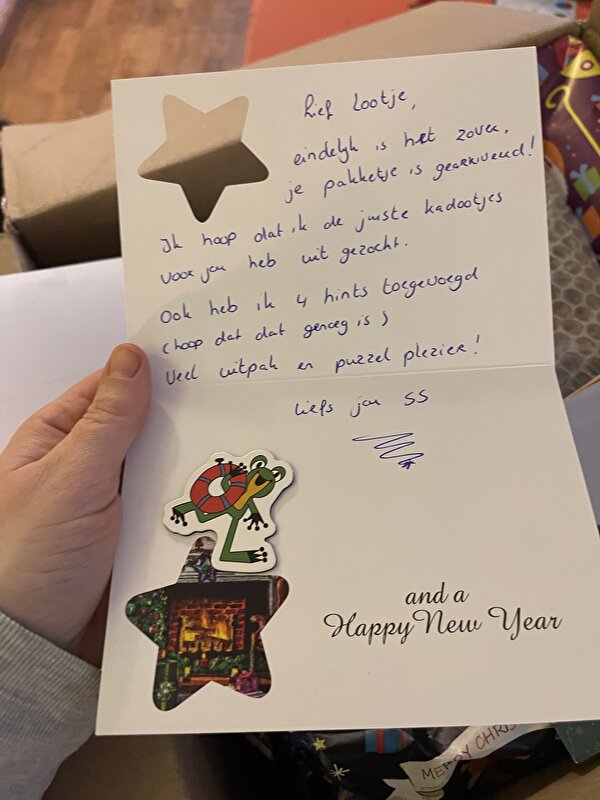 Lief Lootje,
eindelijk is het zover,
je pakketje is gearriveerd!
Ik hoop dat ik de juiste kadootjes
voor jou heb uit gezocht.
Ook heb ik 4 hints toegevoegd
(hoop dat dat genoeg is)
Veel uitpak en puzzel plezier!
Liefs jou SS
and a
Happy New Year
MERRY CHRIS